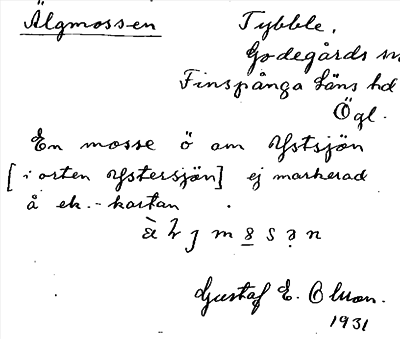 Älgmossen Tybble,
Godegårds sn
Finspånga läns hd
Ögl.
En mosse ö om Ystsjön
[i orten Ystersjön] ej markerad
å ek.-kartan.
Gustaf E. Olson.
1931